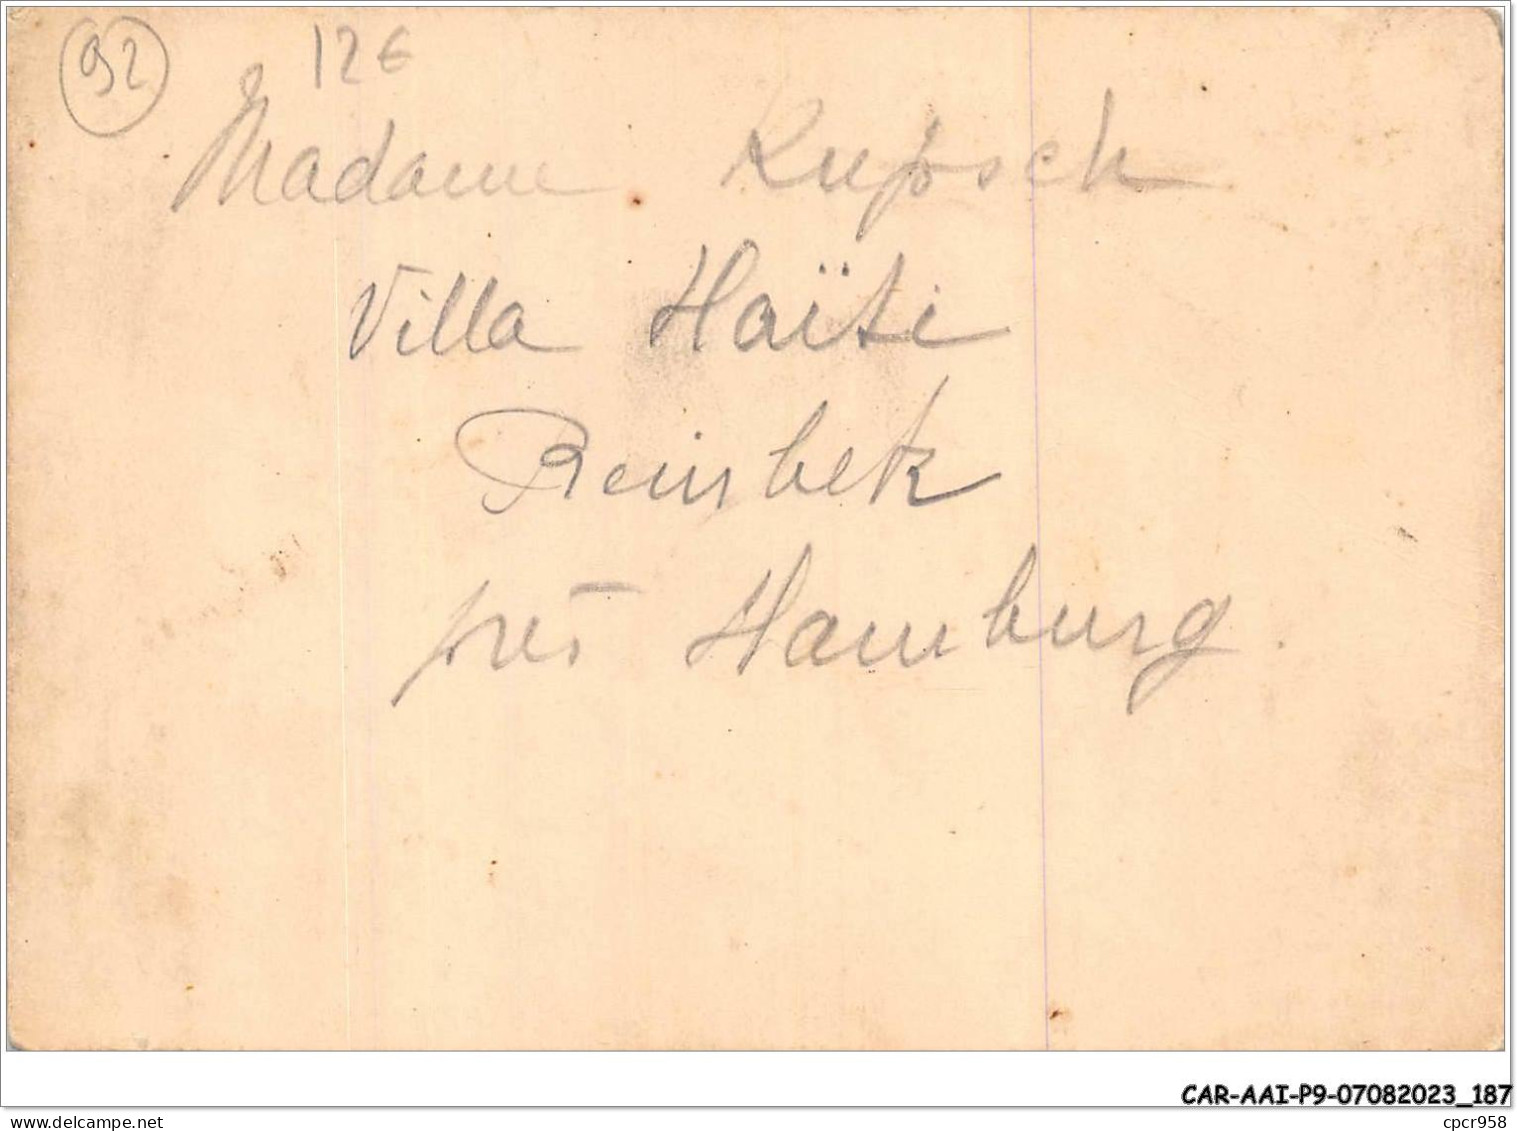 92 12€
Madame Rupsch
Villa Haïti
Reinbek
près Hamburg.
CAR-AAI-P9-07082023_187
www.delcampe.net
cpcr958